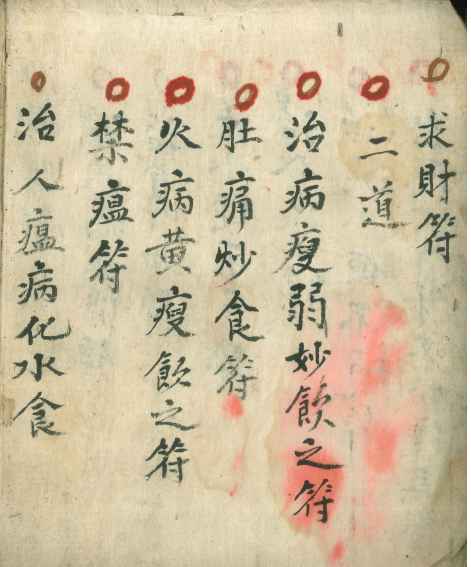 求財符
二道
治病瘦弱妙飲之符
肚痛炒食符
火病黄瘦飲之符
禁瘟符
治人瘟病化水食